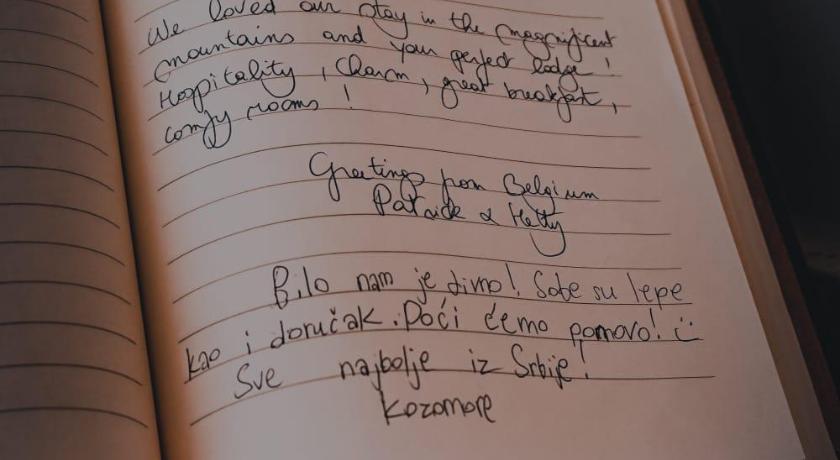 We loved our stay in the magnificent
mountains and your perfect lodge!
Hospitality, Charm, great breakfast,
comfy rooms!
Greetings from Belgium
Patrick & Hetty
Bilo nam je divno! Sobe su lepe
kao i doručak. Doći ćemo ponovo! ü
Sve najbolje iz Srbije!